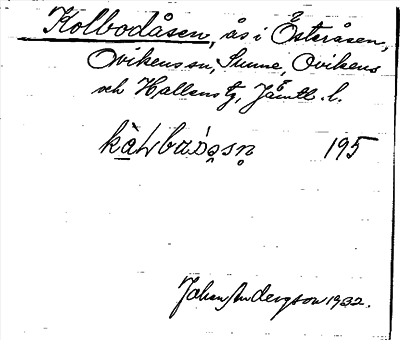 Kolbodåsen, ås i Österåsen,
Ovikens sn, Sunne, Ovikens
och Hallens tg, Jämtl. l.
195
Johan Anderson 1932.